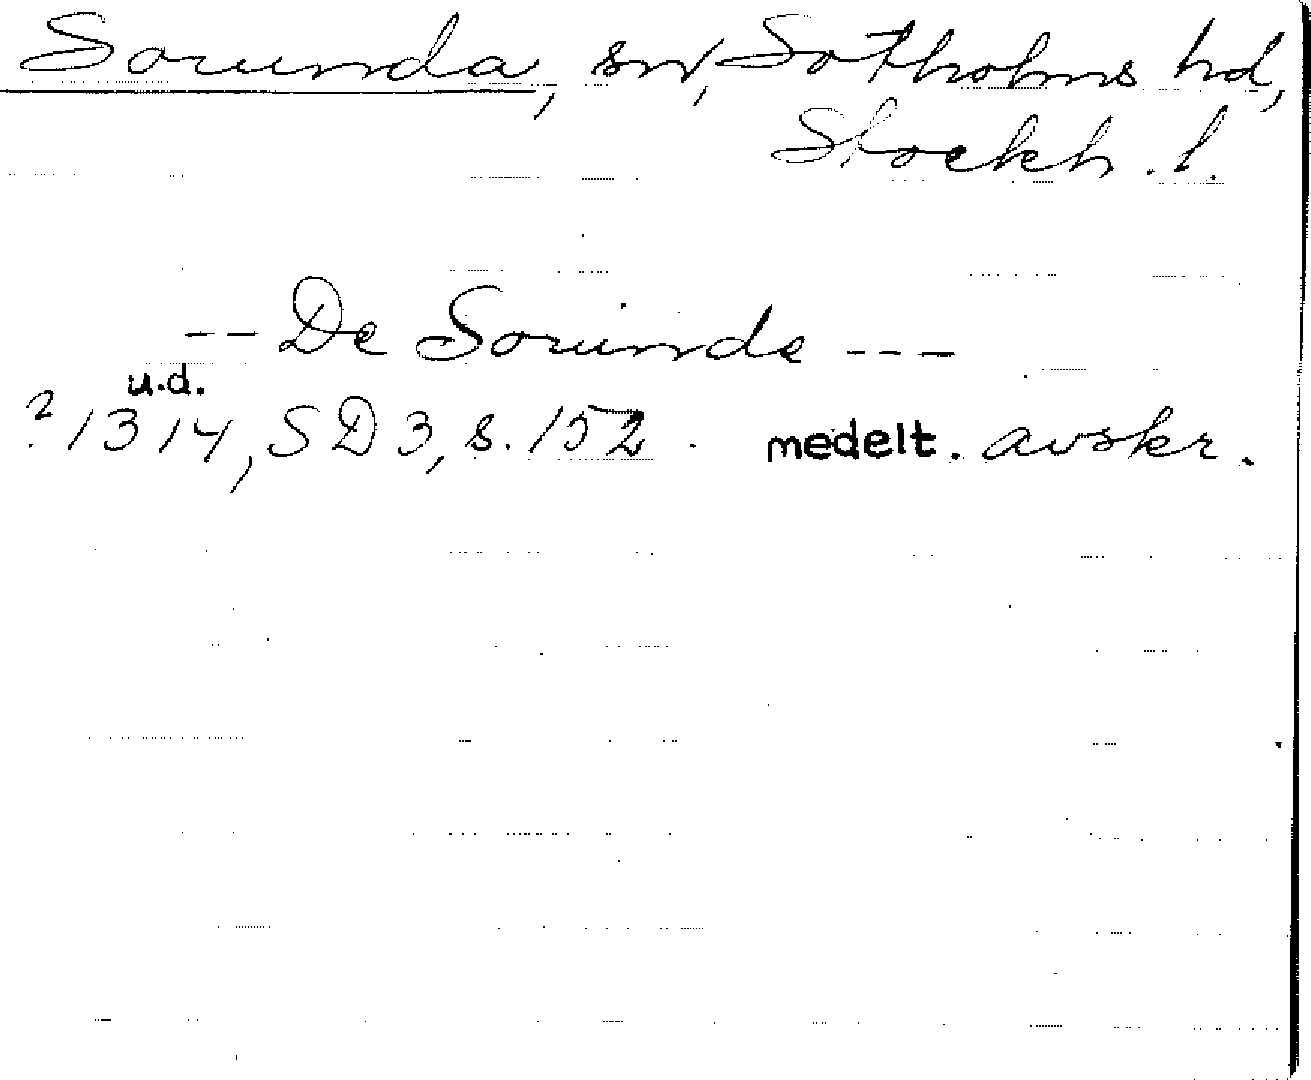 Sorunda, sn, Sotholms hd,
Stockh. l.
-- De Sorunde ---
u.d.
? 1314, SD 3, s. 152. medelt. avskr.